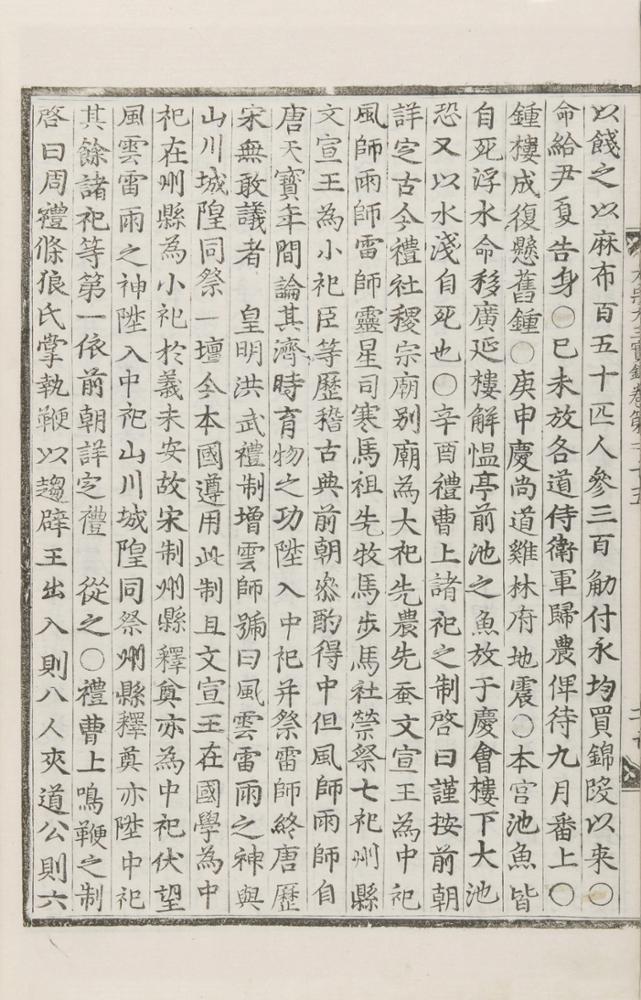 以餞之以麻布百五十匹人參三百觔付永均買錦段以来○
命給尹夏告身○已未放各道侍衛軍歸農俾待九月番上○
鍾樓成復懸舊鍾○庚申慶尚道雞林府地震○本宮池魚皆
自死浮水命移廣延樓解慍亭前池之魚放于慶會樓下大池
恐又以水淺自死也○辛酉禮曹上諸祀之制啓曰謹按前朝
詳定古今禮社稷宗廟别廟為大祀先農先蚕文宣王為中祀
風師雨師雷師靈星司寒馬祖先牧馬步馬社禜祭七祀州縣
文宣王為小祀臣等歷稽古典前朝叅酌得中但風師雨師自
唐天寶年間論其濟時育物之功陞入中祀并祭雷師終唐歷
宋無敢議者　皇明洪武禮制增雲師號曰風雲雷雨之神與
山川城隍同祭一壇今本國遵用此制且文宣王在國學為中
祀在州縣為小祀於義未安故宋制州縣釋奠亦為中祀伏望
風雲雷雨之神陞入中祀山川城隍同祭州縣釋奠亦陞中祀
其餘諸祀等第一依前朝詳定禮　從之○禮曹上鳴鞭之制
啓曰周禮條狼氏掌執鞭以趨辟王出入則八人夾道公則六